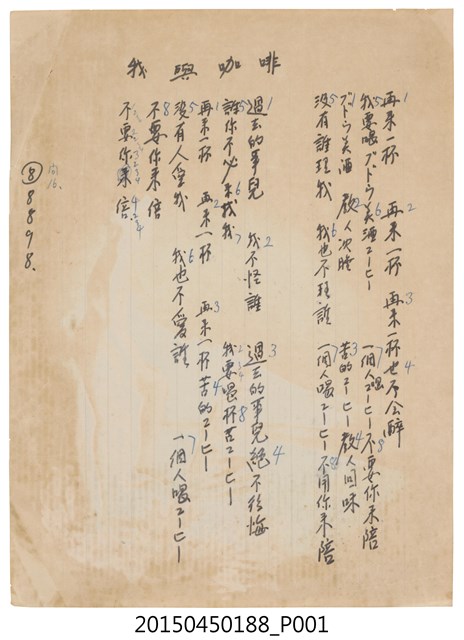 我與咖啡
再來一杯 再來一杯 再來一杯也不会醉
我要喝ブドウ美酒コーヒー 一個人喝コーヒー不要你來陪
ブドウ美酒 教人沉睡 苦的コーヒー教人回味
沒有誰理我 我也不理誰 一個人喝コーヒー不用你來陪
過去的事兒 我不怪誰 過去的事兒絕不後悔
誰你不必來找我 我要喝杯苦コーヒー
再來一杯 再來一杯 再來一杯苦的コーヒー
沒有人愛我 我也不愛誰 一個人喝コーヒー
不要你來倍
不要你來倍
間16.
⑧8898.
20150450188_P001